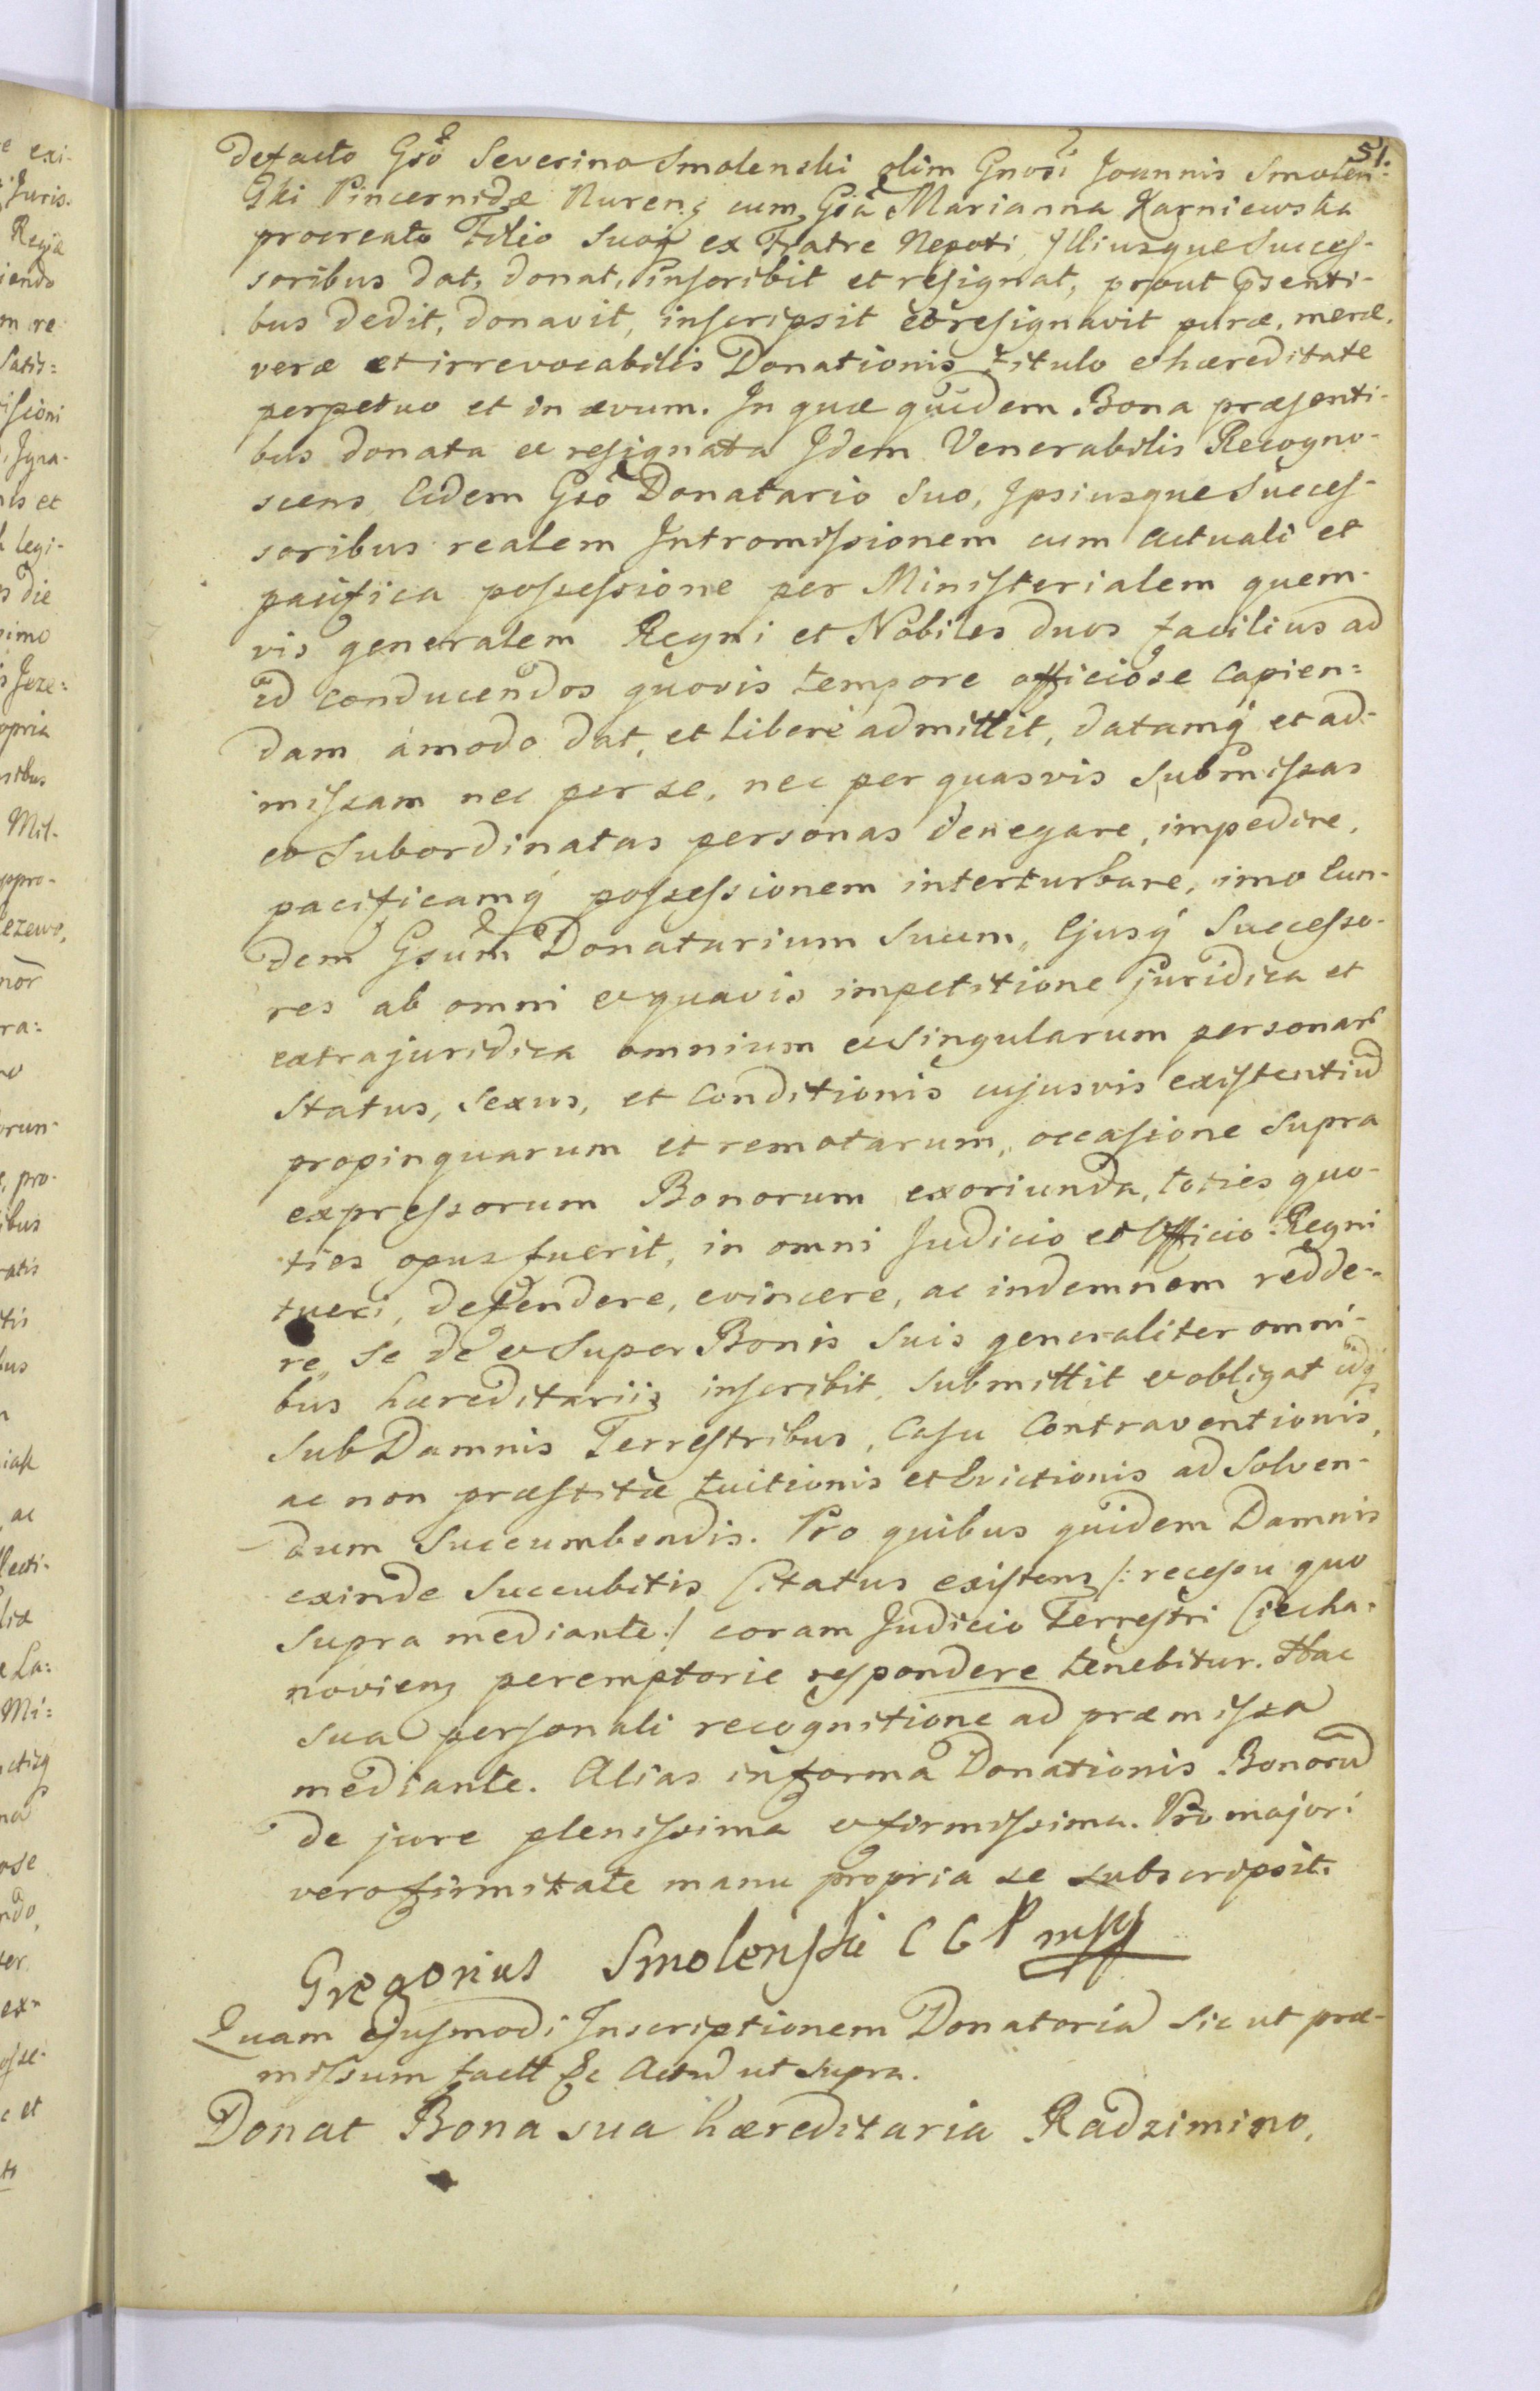 51.
defacto Gsō Severino Smolenski olim Gnosi Joannis Smolen:
Ski Pincernidæ Nurenş cum Gsā Marianna Karniewska
procreato Filio suoq̃ ex Fratre Nepoti, Illiusque Succes-
soribus dat, donat, inscribit et resignat, prout p̄senti-
bus dedit, donavit, inscripsit et resignavit puræ, meræ,
veræ et irrevocabilis Donationis titulo et hæreditate
perpetuo et in ævum. In quæ quidem Bona præsenti-
bus donata et resignata Idem Venerabilis Recogno-
scens Eidem Gsō Donatario Suo, Ipsiusque Succes-
soribus realem Intromissionem cum actuali et
pacifica possessione per Ministerialem quem-
vis generalem Regni et Nobiles duos facilius ad
id conducendos quovis tempore officiose Capien:
dam amodo dat, et libere admittit, datamq̃ et ad-
missam nec per se, nec per quasvis Submissas
et Subordinatas personas denegare, impedire,
pacificamq̃ possessionem interturbare, imo Eun-
dem Gsūm Donatarium Suum, Ejusq̃ Successo-
res ab omni et quavis impetitione juridica et
extrajuridica omnium et Singularum personarū
Status, Sexus, et Conditionis cujusvis existentiū
propinquarum et remotarum, occasione Supra
expressorum Bonorum exoriunda, toties quo-
ties opus fuerit, in omni Judicio et Officio Regni
tueri, defendere, evincere, ac indemnem redde-
re, Se de et Super Bonis Suis generaliter omni-
bus hæreditariis inscribit, Submittit et obligat idq̃
Sub Damnis Terrestribus, Casu Contraventionis,
ac non præstitæ tuitionis et Evictionis ad Solven-
dum Succumbendis. Pro quibus quidem Damnis
exinde Succubitis Citatus existens /: recessu quo
Supra mediante :/ coram Judicio Terrestri Ciecha-
novienş peremptorie respondere tenebitur. Hac
sua personali recognitione ad præmissa
mediante. Alias in forma Donationis Bonorū
de jure plenissima et firmissima. Pro majori
vero firmitate manu propria se subscripsit.
Gregorius Smolenski C G P mpp
Quam ejusmodi Inscriptionem Donatoriā Sic ut præ-
missum factt &c Actū ut supra.
Donat Bona sua hæreditaria Radzimino,